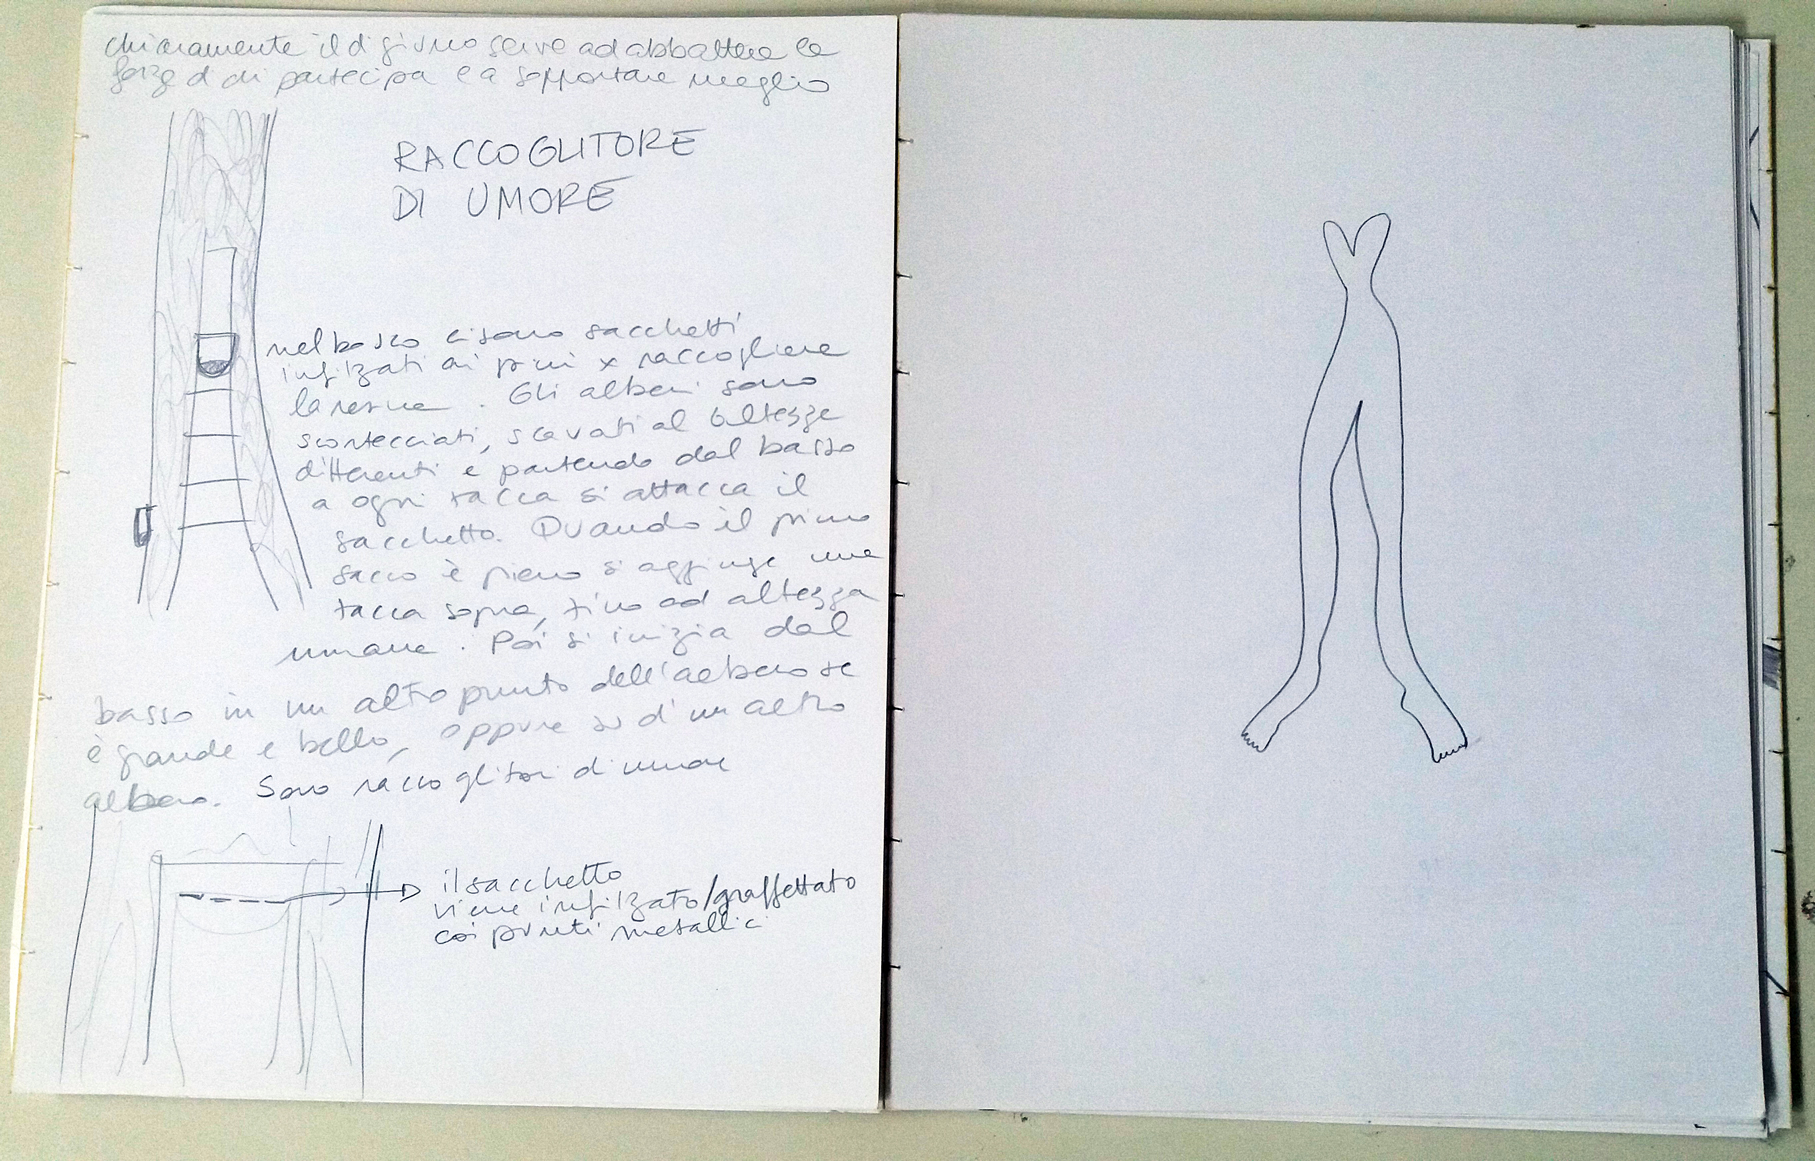 chiaramente il digiuno serve ad abbattere le
forze d chi partecipa e a sopportare meglio
RACCOGLITORE
DI UMORE
nel bosco ci sono sacchetti
infilzati ai pini x raccogliere
la resina. Gli alberi sono
scortecciati, scavati ad altezze
differenti e partendo dal basso
a ogni tacca si attacca il
sacchetto. Quando il primo
sacco è pieno si aggiunge una
tacca sopra, fino ad altezza
umana. Poi si inizia dal
basso in un altro punto dell'albero se
è grande e bello, oppure su d'un altro
albero. Sono raccoglitori di umore
il sacchetto
viene infilzato/graffettato
coi punti metallici